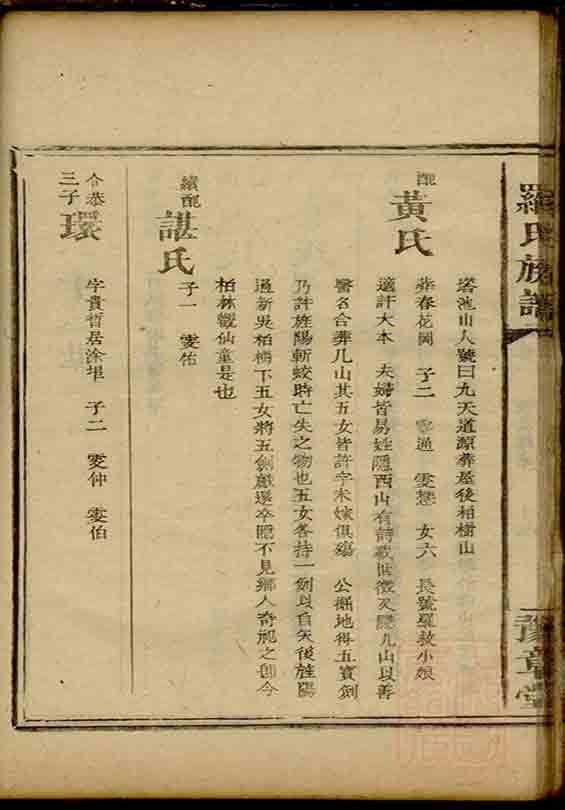 羅氏族譜
豫章堂
塔池山人號曰九天道源葬屋後柏樹山
配
黃氏
葬春花岡 子二 通 雯 女六 長號羅敖小娘
適許大本 夫婦皆易姓隱西山有詩載世徵又隱九山以善
醫名合葬几山其五女皆許字未嫁俱殤 公掘地得五寶劍
乃許旌陽斬蛟時亡失之物也五女各持一劍以自矢後旌陽
過新吳柏樹下五女將五劍獻還卒隱不見鄉人奇祀之即今
柏林觀仙童是也
續配
諶氏
子一 雯佑
令恭
三子
環
字貴哲居涂埠 子二 雯仲 雯伯